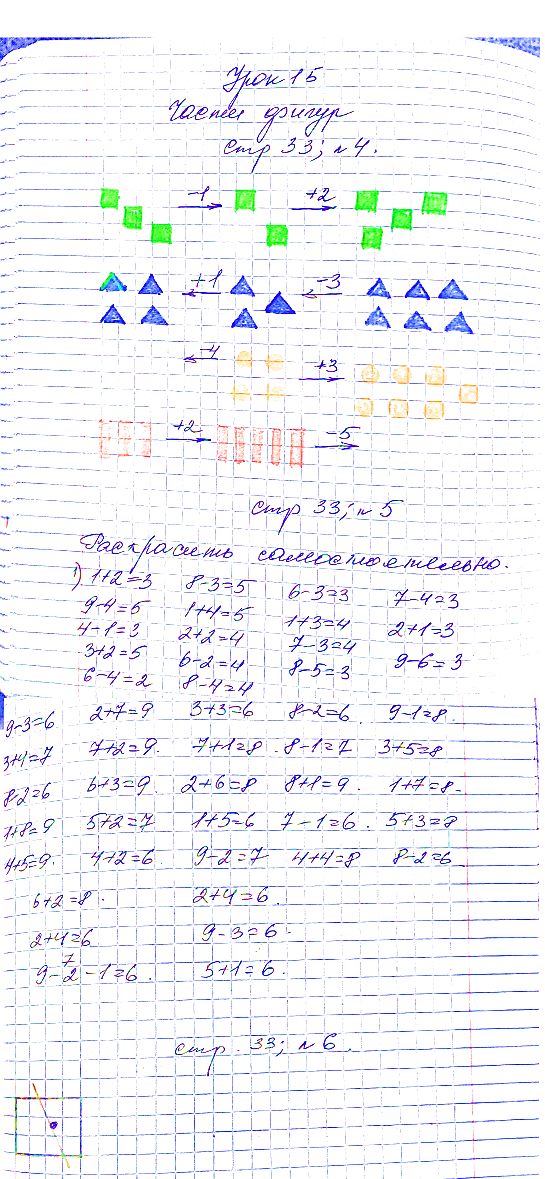 Урок 15
Части фигур
стр 33; №4.
-1 +2
+1 -3
-4 +3
+2 -5
стр 33; №5
Раскрасить самостоятельно.
1) 1+2=3 8-3=5 6-3=3 7-4=3
9-4=5 1+4=5 1+3=4 2+1=3
4-1=3 2+2=4 7-3=4
3+2=5 6-2=4 8-5=3 9-6=3
6-4=2 8-4=4
9-3=6 2+7=9 3+3=6 8-2=6 9-1=8
3+4=7 7+2=9 7+1=8 8-1=7 3+5=8
8-2=6 6+3=9 2+6=8 8+1=9 1+7=8
1+8=9 5+2=7 1+5=6 7-1=6 5+3=8
4+5=9 4+2=6 9-2=7 4+4=8 8-2=6
6+2=8 2+4=6
2+4=6 9-3=6
7
9-2-1=6 5+1=6
стр. 33; №6.